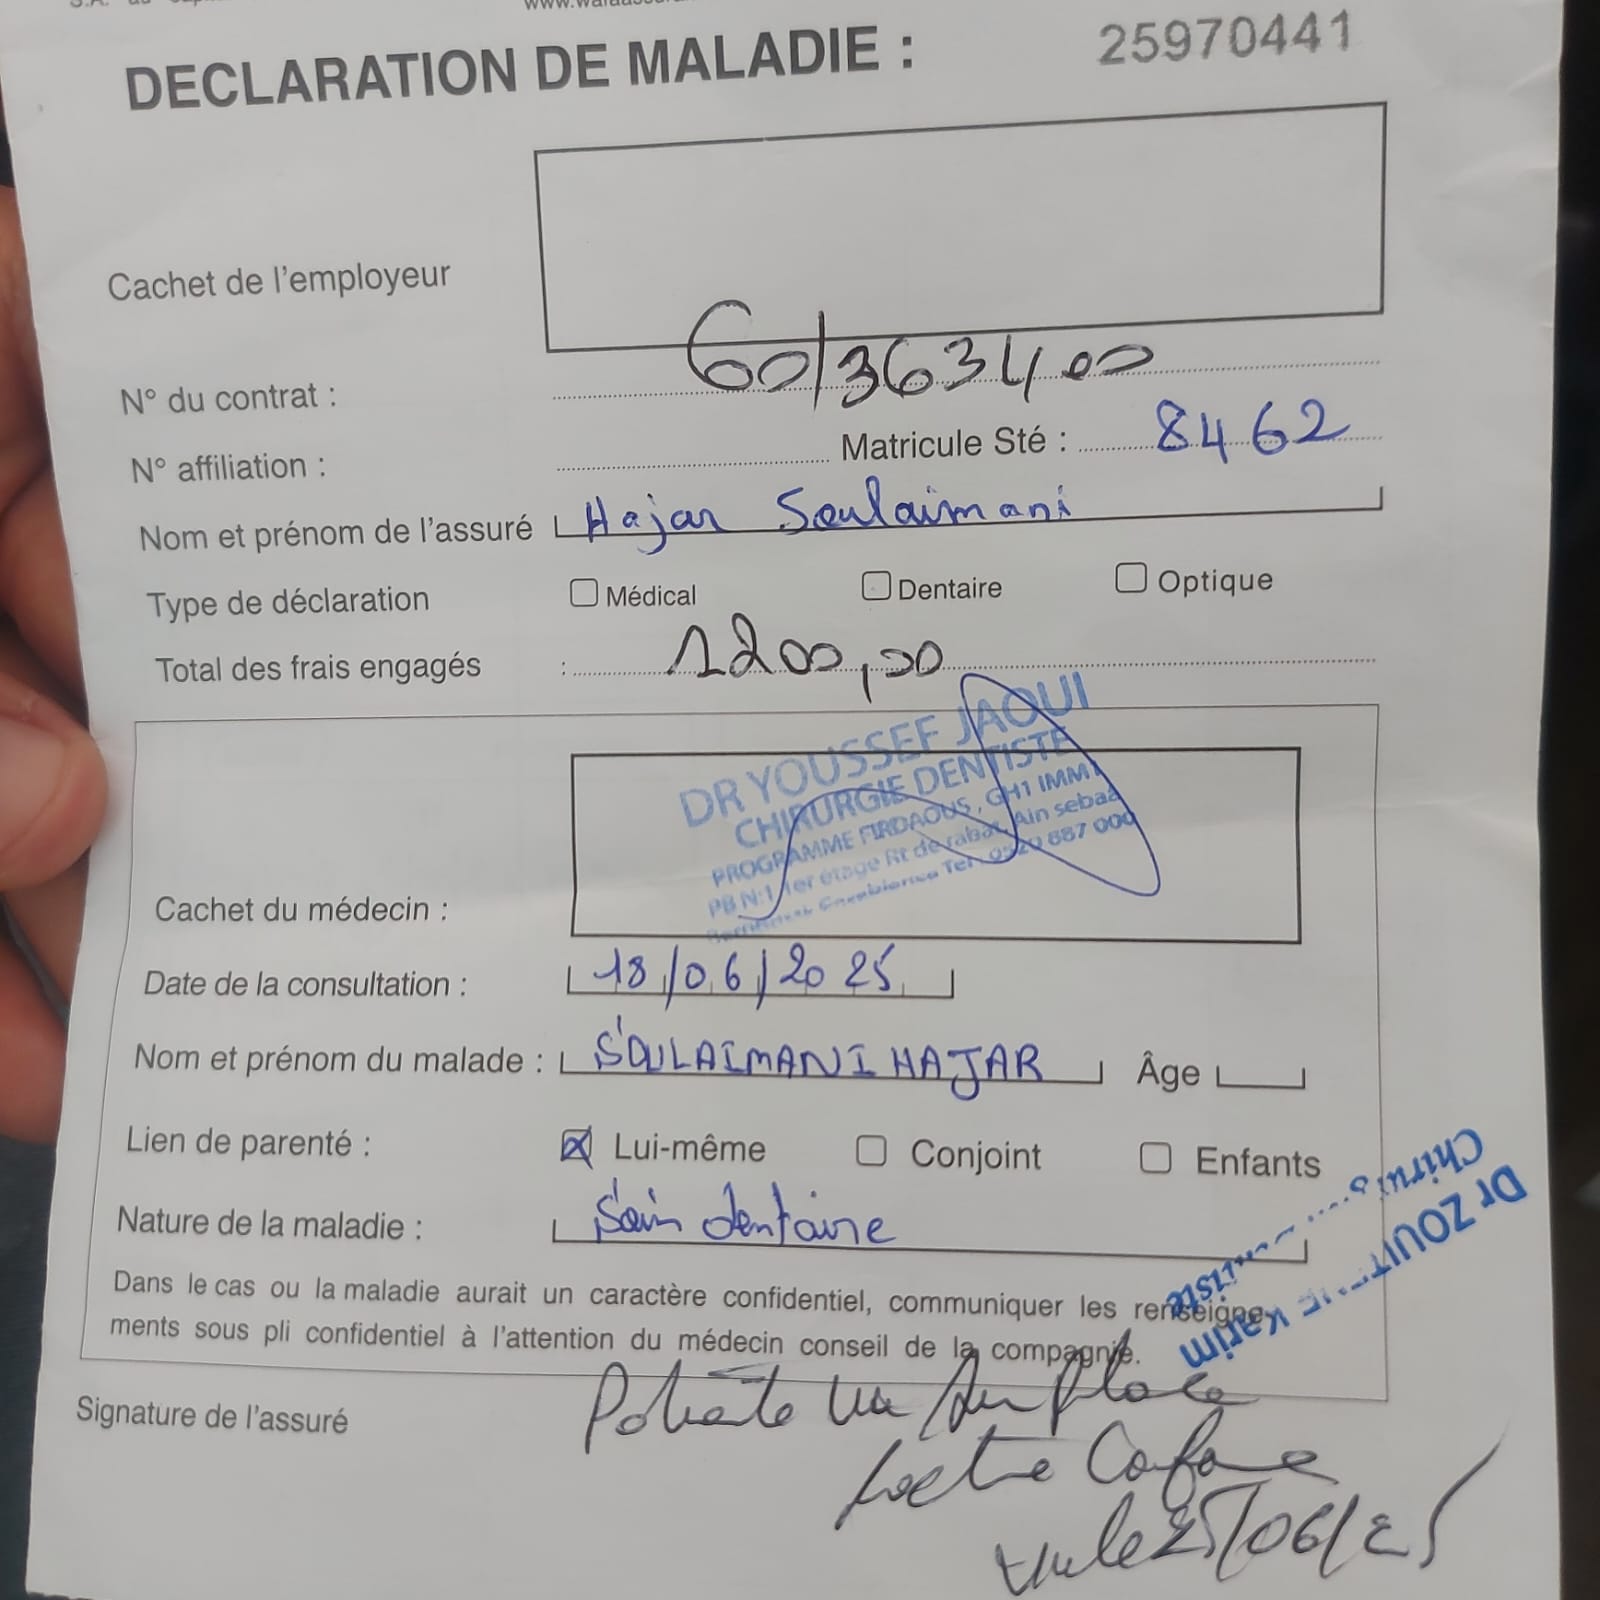 DECLARATION DE MALADIE :
25970441
Cachet de l'employeur
N° du contrat : 60/3634,00
N° affiliation : Matricule Sté : 8462
Nom et prénom de l'assuré Hajar Soulaimani
Type de déclaration Médical Dentaire Optique
Total des frais engagés : 1200,00
DR YOUSSEF JAOUI
CHIRURGIE DENTISTE
PROGRAMME FIRDAOUS, GH1 IMM1
PB N:1 1er étage Rt de rabat, Ain sebaa
Casablanca Tel: 0520 887 000
Cachet du médecin :
Date de la consultation : 18/06/2025
Nom et prénom du malade : SOULAIMANI HAJAR Âge
Lien de parenté : Lui-même Conjoint Enfants
Nature de la maladie : Soin dentaire
Dans le cas ou la maladie aurait un caractère confidentiel, communiquer les renseigne-
ments sous pli confidentiel à l'attention du médecin conseil de la compagnie.
Dr Karim
Signature de l'assuré
25/06/25